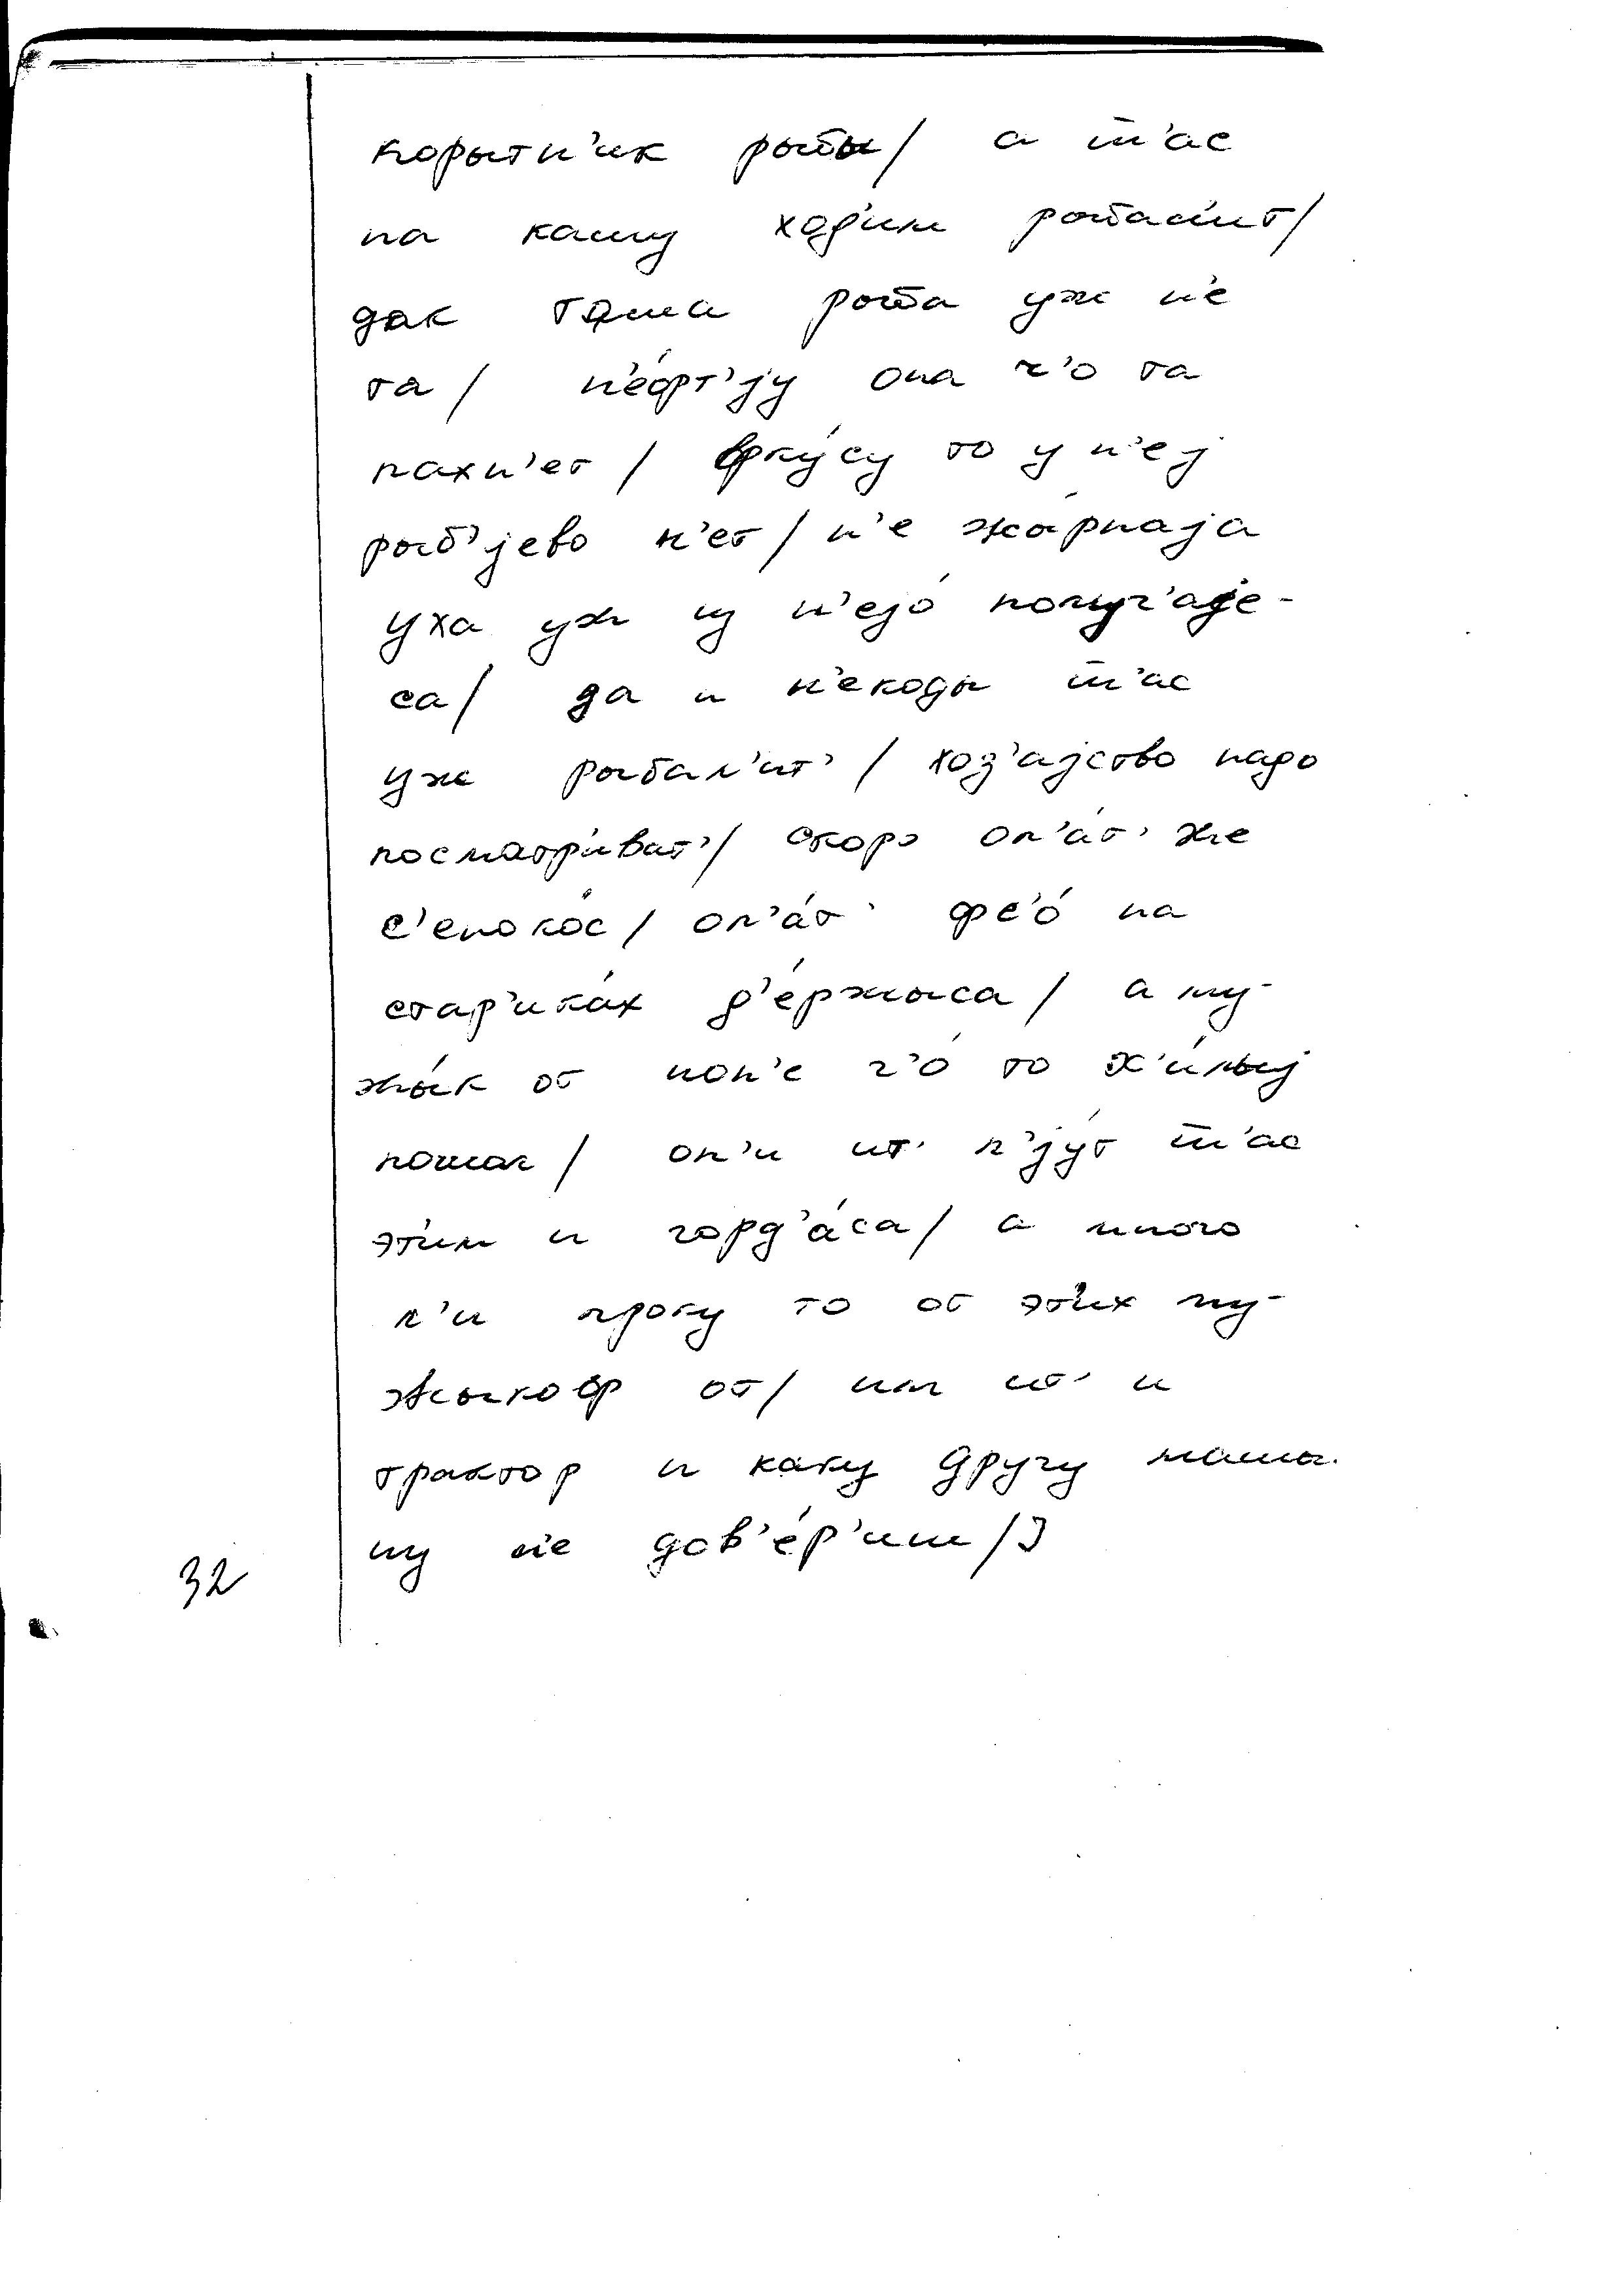 корытн'ик рыбы/ а т'ас
на каму ход'им рыбал'ит/
дак тама рыба уж н'е
та/ н'ефт'jу она ч'о та
пахн'ет/ фкусу то у н'еj
рыб'jево н'ет/ н'е жарнаjа
уха уж из н'еjо получ'аjе-
са/ да и н'екоды т'ас
уж рыбал'ит'/ хоз'аjство надо
посматр'иват'/ скоро оп'ат' же
с'енокос/ оп'ат' фс'о на
стар'иках д'ержыса/ а му-
жык от нон'е ч'о то х'илыj
пошол/ он'и ит' п'jут т'ас
эт'им и горд'аса/ а много
л'и проку то от эт'их му-
жыкоф от/ им ит' и
трактор и каку другу машы-
ну н'е дов'ер'иш/]
32